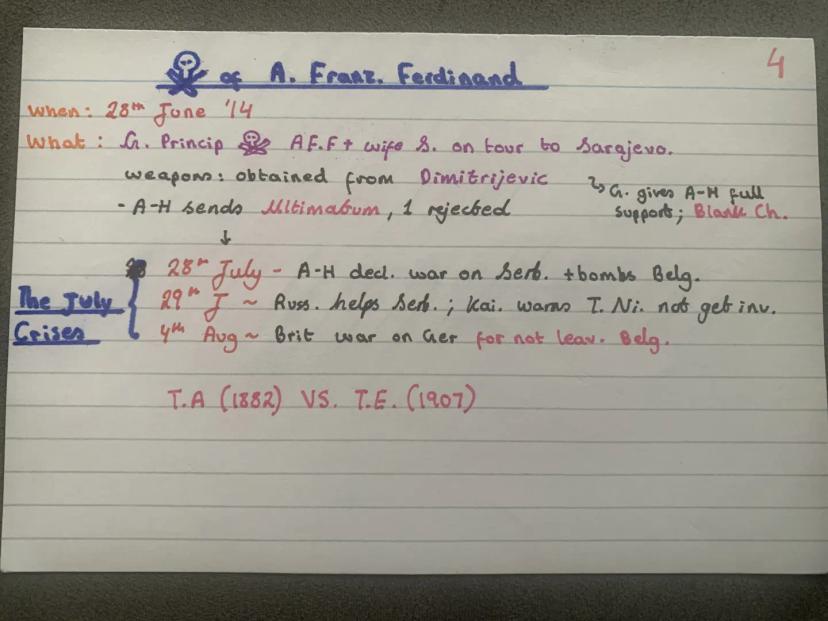 4
of A. Franz. Ferdinand
When: 28th June '14
What: G. Princip AF.F + wife S. on tour to Sarajevo.
weapons: obtained from Dimitrijevic
↳ G. gives A-H full
support; Blank Ch.
- A-H sends Ultimatum, 1 rejected
↓
The July
Crises
28th July - A-H decl. war on Serb. + bombs Belg.
29th J ~ Russ. helps Serb.; Kai. warns T. Ni. not get inv.
4th Aug ~ Brit war on Ger for not leav. Belg.
T.A (1882) VS. T.E. (1907)